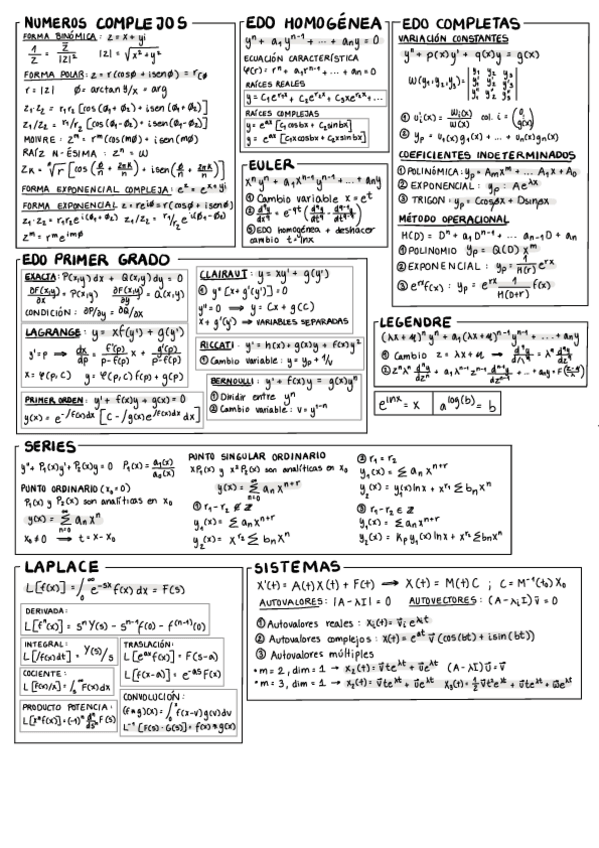 NUMEROS COMPLEJOS
FORMA BINÓMICA: z = x + yi
1/z = z̄/|z|² |z| = √(x² + y²)
FORMA POLAR: z = r(cosø + isenø) = r_ø
r = |z| ø = arctan y/x = arg
z₁·z₂ = r₁r₂ [cos(ø₁+ø₂) + isen(ø₁+ø₂)]
z₁/z₂ = r₁/r₂ [cos(ø₁-ø₂) + isen(ø₁-ø₂)]
MOIVRE: z^m = r^m (cos(mø) + isen(mø))
RAÍZ N-ÉSIMA: z^n = ω
FORMA EXPONENCIAL COMPLEJA: e^z = e^(x+yi)
FORMA EXPONENCIAL z = re^(iø) = r(cosø + isenø)
z₁·z₂ = r₁r₂e^(i(ø₁+ø₂)) z₁/z₂ = r₁/r₂ e^(i(ø₁-ø₂))
z^m = r^m e^(imø)
EDO HOMOGÉNEA
y^n + a₁y^(n-1) + ... + a_n y = 0
ECUACIÓN CARACTERÍSTICA
φ(r) = r^n + a₁r^(n-1) + ... + a_n = 0
RAÍCES REALES
RAÍCES COMPLEJAS
y = e^(ax) [C₁cosbx + C₂sinbx]
y = e^(ax) [C₁xcosbx + C₂xsinbx]
EULER
x^n y^n + a₁x^(n-1)y^(n-1) + ... + a_n y
① Cambio variable x = e^t
③ EDO homogénea + deshacer
cambio t = lnx
EDO COMPLETAS
VARIACIÓN CONSTANTES
y'' + p(x)y' + q(x)y = g(x)
W(y₁,y₂,y₃) =
① u'ᵢ(x) = Wᵢ(x)/W(x) col. i = (0, g(x))
② y_p = u₁(x)y₁(x) + ... + u_n(x)y_n(x)
COEFICIENTES INDETERMINADOS
① POLINÓMICA: y_p = A_m x^m + ... A₁x + A₀
② EXPONENCIAL: y_p = Ae^(λx)
③ TRIGON: y_p = Ccosβx + Dsinβx
MÉTODO OPERACIONAL
H(D) = D^n + a₁D^(n-1) + ... a_(n-1)D + a_n
① POLINOMIO y_p = Q(D) x^m
② EXPONENCIAL: y_p = 1/H(r) e^(rx)
③ e^(rx)f(x): y_p = e^(rx) 1/H(D+r) f(x)
EDO PRIMER GRADO
EXACTA: P(x,y)dx + Q(x,y)dy = 0
∂F(x,y)/∂x = P(x,y) ∂F(x,y)/∂y = Q(x,y)
CONDICIÓN: ∂P/∂y = ∂Q/∂x
LAGRANGE: y = xf(y') + g(y')
y' = p ⇒ dx/dp = f'(p)/(p-f(p)) x + g'(p)/(p-f(p))
x = φ(p,C) y = φ(p,C)f(p) + g(p)
PRIMER ORDEN: y' + f(x)y + g(x) = 0
y(x) = e^(-∫f(x)dx) [C - ∫g(x)e^(∫f(x)dx) dx]
CLAIRAUT: y = xy' + g(y')
① y''[x + g'(y')] = 0
y'' = 0 ⟹ y = Cx + g(C)
x + g'(y') → VARIABLES SEPARADAS
RICCATI: y' = h(x) + g(x)y + f(x)y²
① Cambio variable: y = y_p + 1/v
BERNOULLI: y' + f(x)y = g(x)y^n
① Dividir entre y^n
② Cambio variable: v = y^(1-n)
LEGENDRE
(λx + μ)^n y^n + a₁(λx + μ)^(n-1) y^(n-1) + ... + a_n y
① Cambio z = λx + μ →
e^(lnx) = x
a^(log(b)) = b
SERIES
y'' + P₁(x)y' + P₂(x)y = 0 P₁(x) = a₁(x)/a₀(x)
PUNTO ORDINARIO (x₀=0)
P₁(x) y P₂(x) son analíticas en x₀
y(x) = Σ a_n x^n
x₀ ≠ 0 → t = x - x₀
PUNTO SINGULAR ORDINARIO
xP₁(x) y x²P₂(x) son analíticas en x₀
y(x) = Σ a_n x^(n+r)
① r₁-r₂ ∉ Z
y₁(x) = Σ a_n x^(n+r)
y₂(x) = x^(r₂) Σ b_n x^n
② r₁ = r₂
y₁(x) = Σ a_n x^(n+r)
y₂(x) = y₁(x)lnx + x^(r₁) Σ b_n x^n
③ r₁-r₂ ∈ Z
y₁(x) = Σ a_n x^(n+r)
y₂(x) = K_p y₁(x)lnx + x^(r₂) Σ b_n x^n
LAPLACE
L[f(x)] = ∫₀^∞ e^(-sx) f(x)dx = F(s)
DERIVADA:
L[f^n(x)] = s^n Y(s) - s^(n-1) f(0) - f^(n-1)(0)
INTEGRAL:
L[∫f(x)dt] = Y(s)/s
COCIENTE:
L[f(x)/x] = ∫ F(x)dx
PRODUCTO POTENCIA:
L[x^n f(x)] = (-1)^n d^n/ds^n F(s)
TRASLACIÓN:
L[e^(ax) f(x)] = F(s-a)
L[f(x-a)] = e^(-as) F(s)
CONVOLUCIÓN:
(f*g)(x) = ∫₀^x f(x-v)g(v)dv
L⁻¹[F(s)·G(s)] = f(x)*g(x)
SISTEMAS
X'(t) = A(t)X(t) + F(t) → X(t) = M(t)C ; C = M⁻¹(t₀)X₀
AUTOVALORES: |A-λI| = 0 AUTOVECTORES: (A-λᵢI)v̄ = 0
① Autovalores reales: xᵢ(t) = v̄ᵢe^(λt)
② Autovalores complejos: x(t) = e^(at) v̄ (cos(bt) + isin(bt))
③ Autovalores múltiples
• m = 2, dim = 1 → x₂(t) = v̄te^(λt) + ūe^(λt) (A-λI)ū = v̄
• m = 3, dim = 1 → x₂(t) = v̄te^(λt) + ūe^(λt) x₃(t) = ½v̄t²e^(λt) + ūte^(λt) + w̄e^(λt)